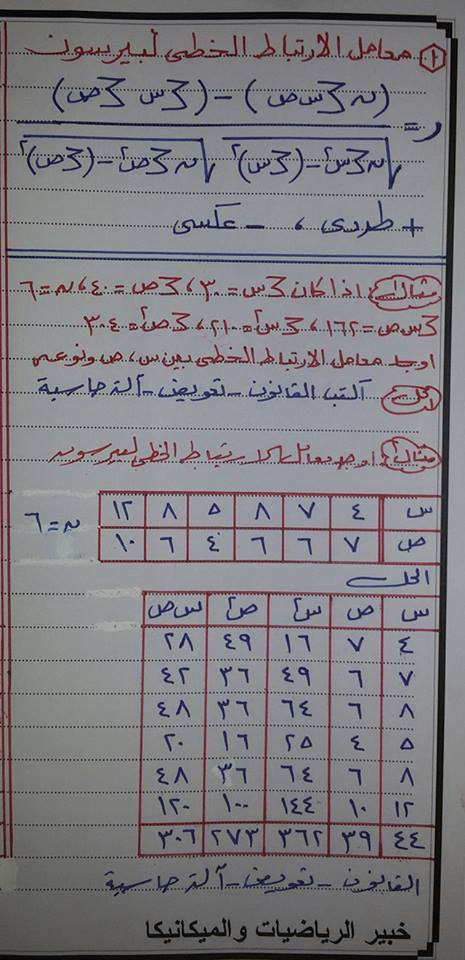 ١ معامل الارتباط الخطى لبيرسون
ر = (ن∑س ص) - (∑س ∑ص) / √ن∑س² - (∑س)² √ن∑ص² - (∑ص)²
+ طردى ، - عكسى
مثال١ اذا كان ∑س = ٣٠ ، ∑ص = ٤٠ ، ن = ٦
∑س ص = ١٦٢ ، ∑س² = ٢١٠ ، ∑ص² = ٣٠٤
اوجد معامل الارتباط الخطى بين س ، ص ونوعه
الحل اكتب القانون - تعويض - آلة حاسبة
مثال٢ اوجد معامل الارتباط الخطى لبيرسون
س ٤ ٧ ٨ ٥ ٨ ١٢
ص ٧ ٦ ٦ ٤ ٦ ١٠
ن = ٦
الحل
س ص س² ص² س ص
٤ ٧ ١٦ ٤٩ ٢٨
٧ ٦ ٤٩ ٣٦ ٤٢
٨ ٦ ٦٤ ٣٦ ٤٨
٥ ٤ ٢٥ ١٦ ٢٠
٨ ٦ ٦٤ ٣٦ ٤٨
١٢ ١٠ ١٤٤ ١٠٠ ١٢٠
٤٤ ٣٩ ٣٦٢ ٢٧٣ ٣٠٦
القانون - تعويض - آلة حاسبة
خبير الرياضيات والميكانيكا